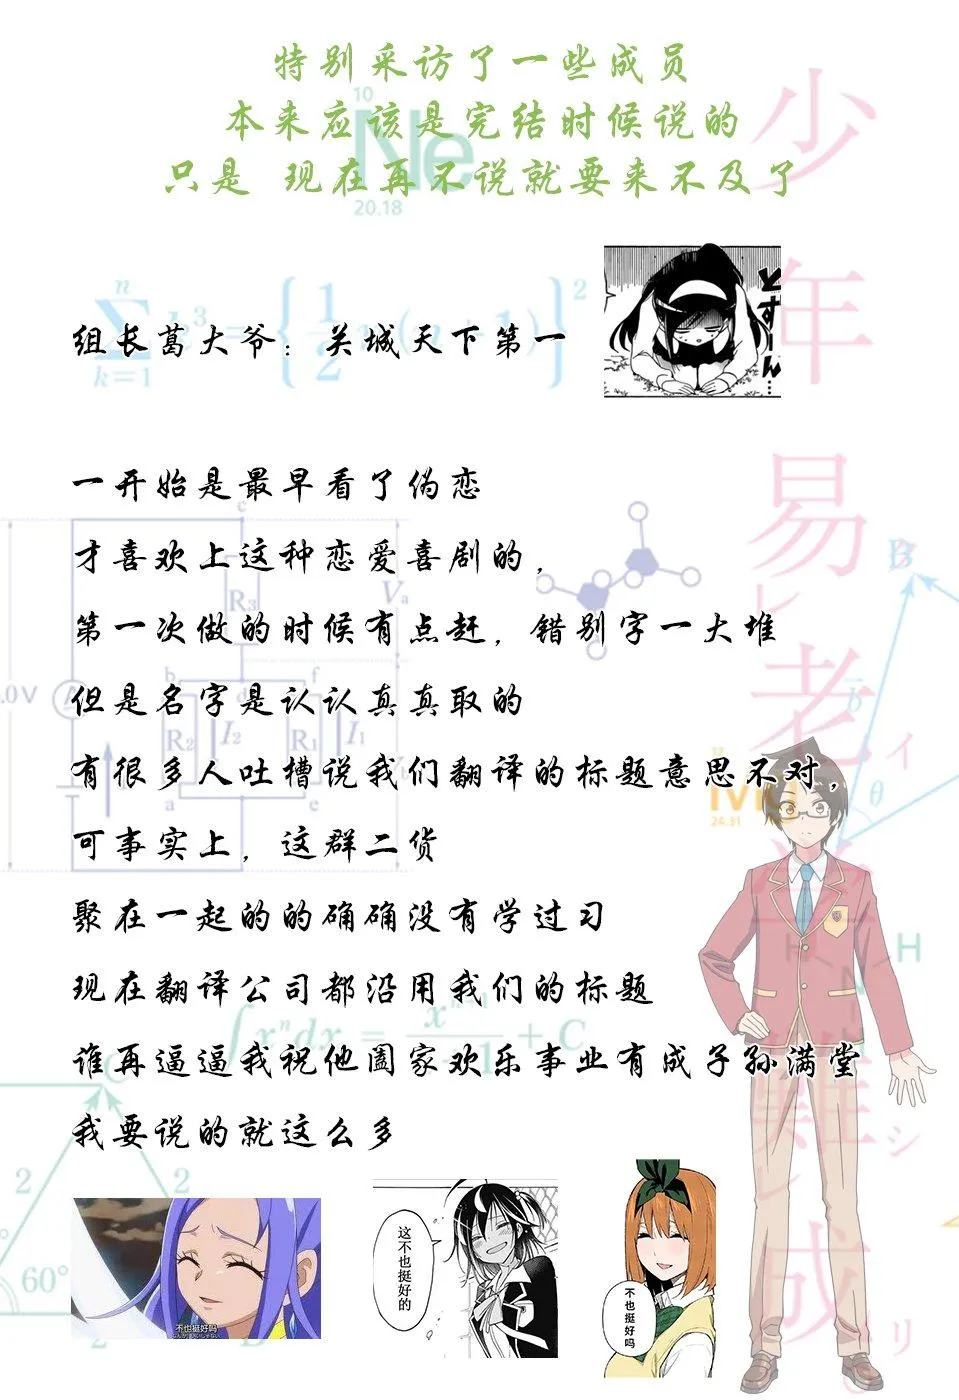 特别采访了一些成员
本来应该是完结时候说的
只是 现在再不说就要来不及了
10
Ne
20.18
组长葛大爷：关城天下第一
とすーん…
一开始是最早看了伪恋
才喜欢上这种恋爱喜剧的，
第一次做的时候有点赶，错别字一大堆
但是名字是认认真真取的
有很多人吐槽说我们翻译的标题意思不对，
可事实上，这群二货
聚在一起的的确确没有学过习
现在翻译公司都沿用我们的标题
谁再逼逼我祝他阖家欢乐事业有成子孙满堂
我要说的就这么多
不也挺好吗
这不也挺好的
不也挺好吗
少年易レ老イ学難シレ成リ
c
R3
Va
.0V
A
b
d
f
R2
I2
R1
I1
a
e
24.31
B
b
θ
H
N
H
C
2
2
60°
2
B